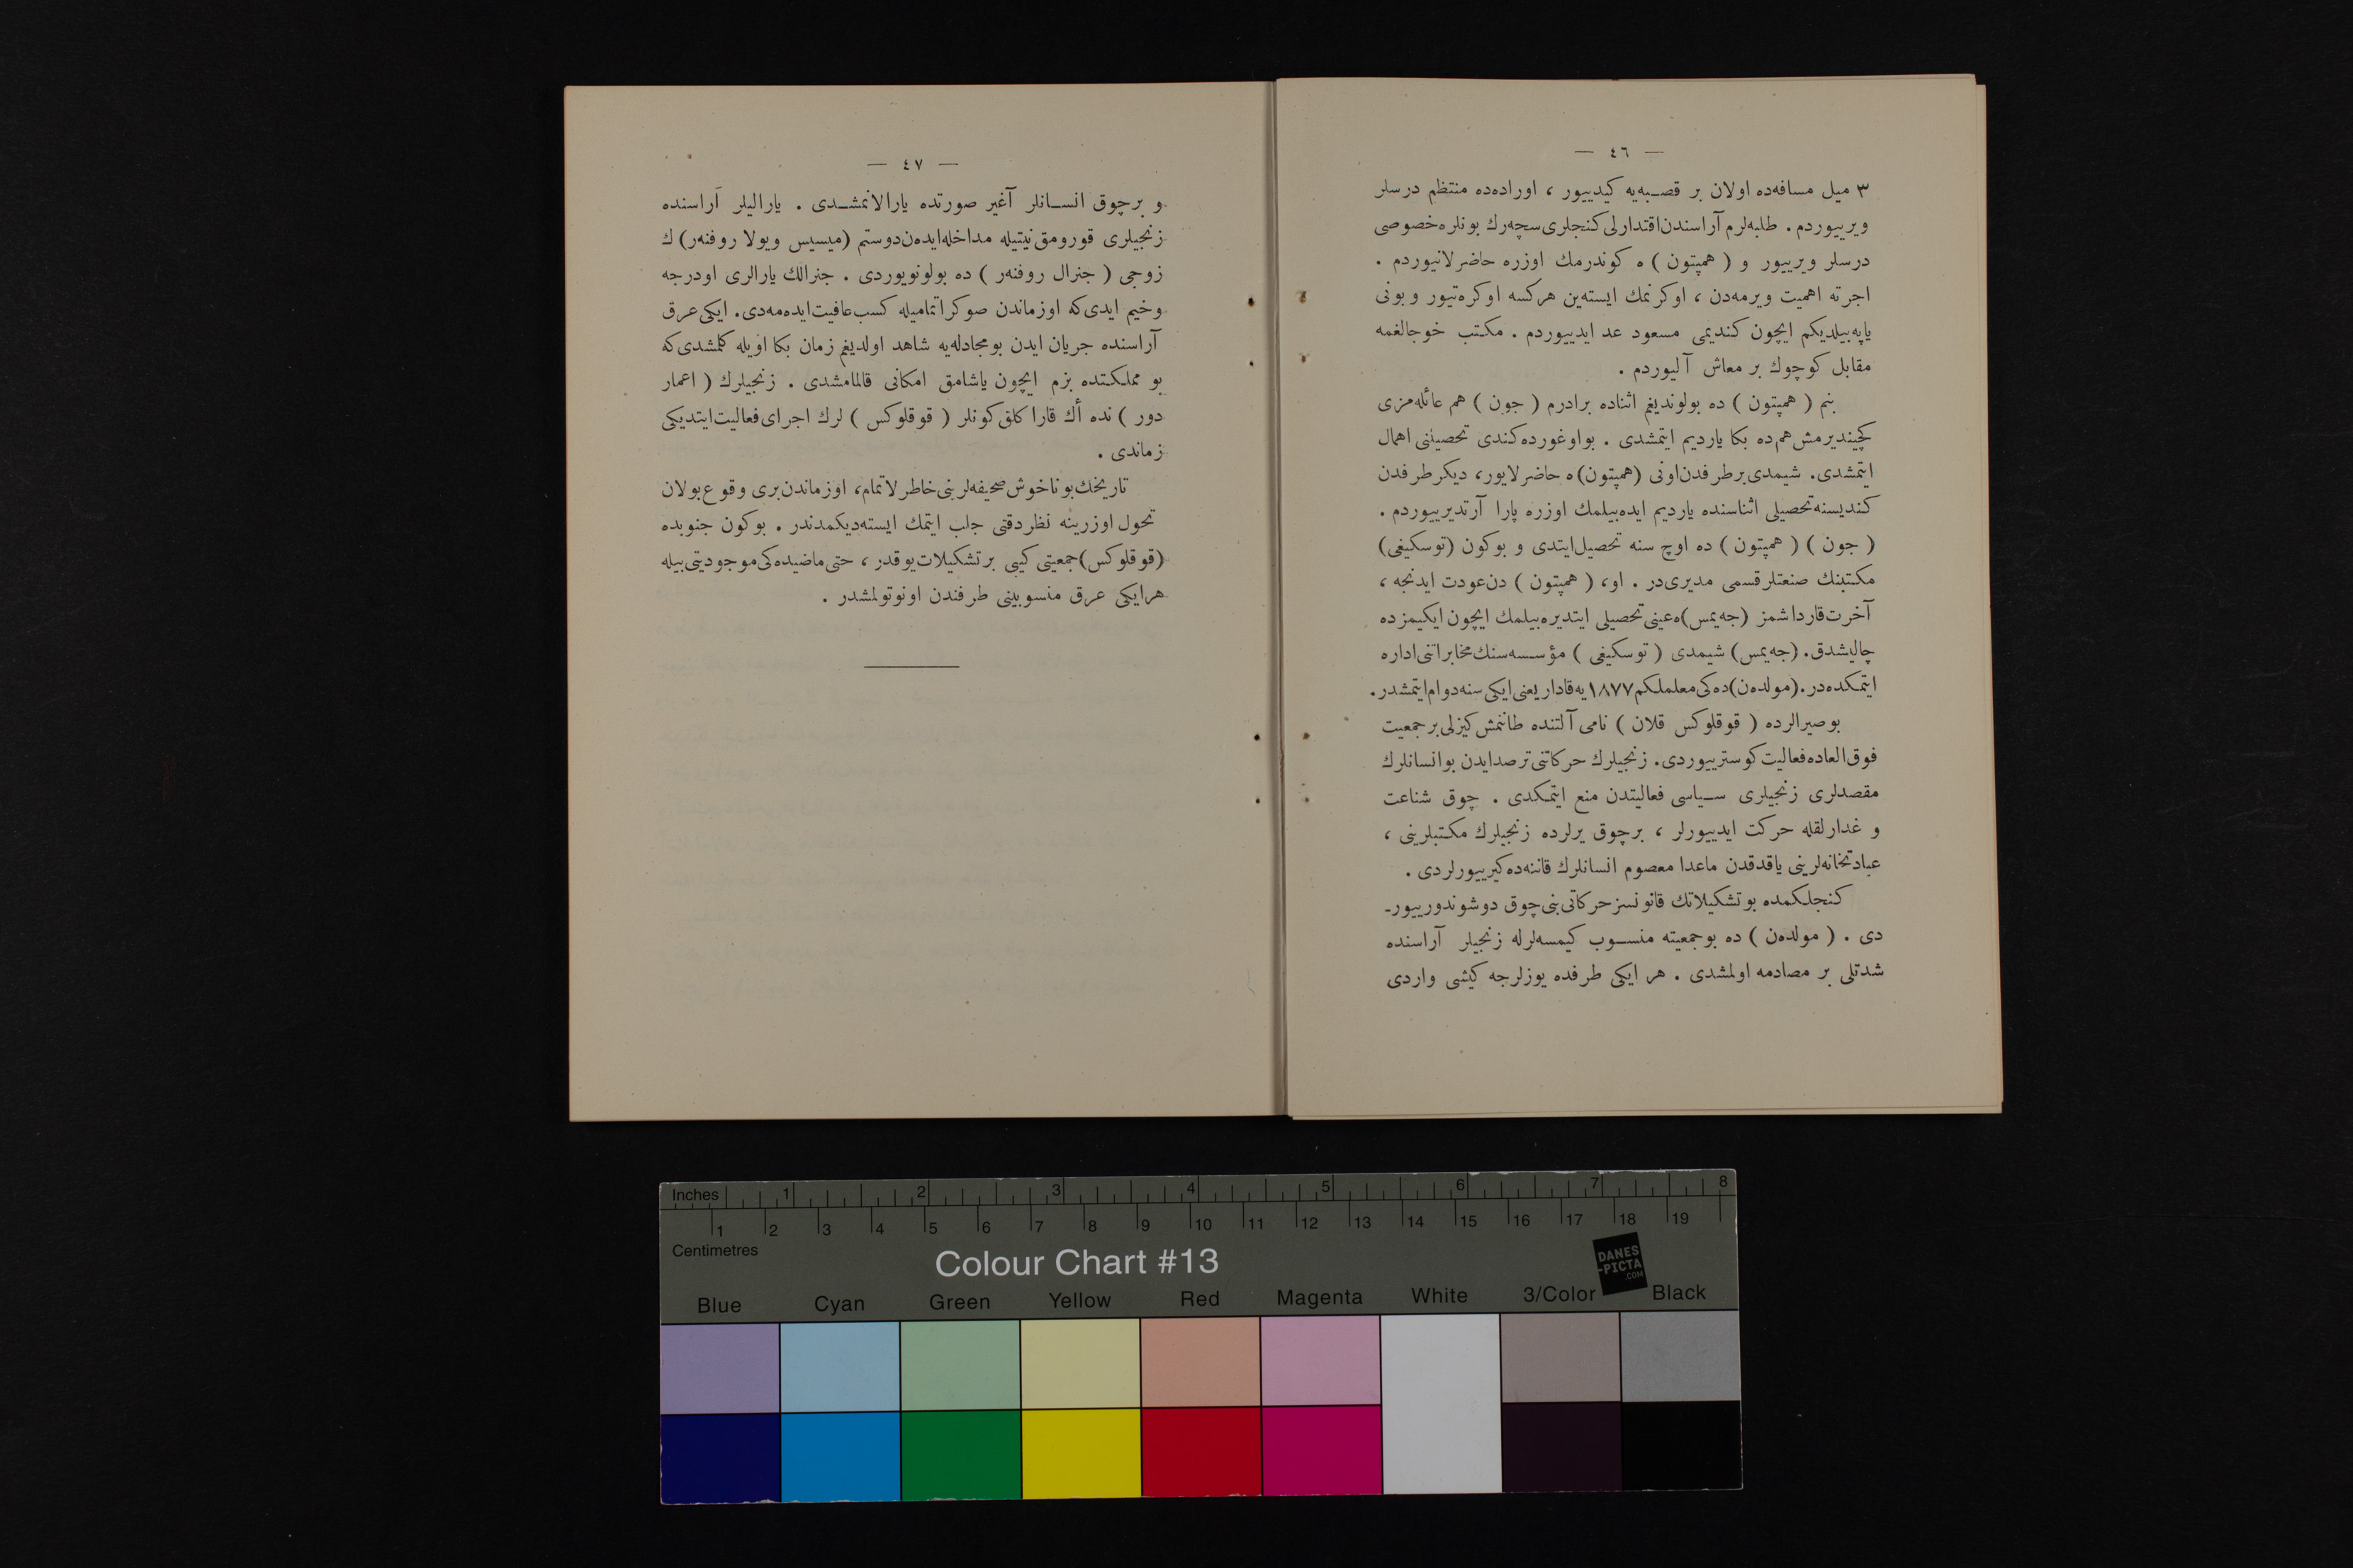 — ٤٦ —
٣ ميل مسافه‌ده اولان بر قصبه‌يه كيدييور ، اوراده‌ده منتظم درسلر
ويرييوردم . طلبه‌لرم آراسندن اقتدارلى كنجلرى سچه‌رك بونلره خصوصى
درسلر ويرييور و ( همپتون ) ه كوندرمك اوزره حاضرلانيوردم .
اجرته اهميت ويرمه‌دن ، اوكرنمك ايسته‌ين هركسه اوكره‌تيور و بونى
ياپه‌بيلديكم ايچون كنديمى مسعود عد ايدييوردم . مكتب خوجالغمه
مقابل كوچوك بر معاش آليوردم .
بنم ( همپتون ) ده بولونديغم اثناده برادرم ( جون ) هم عائله‌مزى
كچينديرمش هم‌ده بكا يارديم ايتمشدى . بو اوغورده كندى تحصيلنى اهمال
ايتمشدى . شيمدى بر طرفدن اونى (همپتون) ه حاضرلايور، ديكر طرفدن
كنديسنه تحصيلى اثناسنده يارديم ايده‌بيلمك اوزره پارا آرتديرييوردم .
( جون ) ( همپتون ) ده اوچ سنه تحصيل ايتدى و بوكون (توسكيغى)
مكتبنك صنعتلر قسمى مديرى‌در . او، ( همپتون ) دن عودت ايدنجه ،
آخرت قارداشمز (جه‌يمس) ه عينى تحصيلى ايتديره‌بيلمك ايچون ايكيمزده
چاليشدق. (جه‌يمس) شيمدى ( توسكيغى ) مؤسسه‌سنك مخابراتنى اداره
ايتمكده‌در. (مولده‌ن) ده‌كى معلملكم ١٨٧٧ يه قادار يعنى ايكى سنه دوام ايتمشدر.
بو صيرالرده ( قوقلوكس قلان ) نامى آلتنده طانمش كيزلى بر جمعيت
فوق‌العاده فعاليت كوسترييوردى. زنجيلرك حركاتنى ترصد ايدن بو انسانلرك
مقصدلرى زنجيلرى سياسى فعاليتدن منع ايتمكدى . چوق شناعت
و غدارلقله حركت ايدييورلر ، برچوق يرلرده زنجيلرك مكتبلرينى ،
عبادتخانه‌لرينى ياقدقدن ماعدا معصوم انسانلرك قاننه‌ده كيرييورلردى .
كنجلكمده بو تشكيلاتك قانونسز حركاتى بنى چوق دوشوندورييور-
دى . ( مولده‌ن ) ده بو جمعيته منسوب كيمسه‌لرله زنجيلر آراسنده
شدتلى بر مصادمه اولمشدى . هر ايكى طرفده يوزلرجه كيشى واردى
— ٤٧ —
و برچوق انسانلر آغير صورتده يارالانمشدى . ياراليلر آراسنده
زنجيلرى قورومق نيتيله مداخله ايده‌ن دوستم (ميسيس ويولا روفنه‌ر) ك
زوجى ( جنرال روفنه‌ر ) ده بولونويوردى . جنرالك يارالرى اودرجه
وخيم ايدى كه اوزماندن صوكرا تماميله كسب عافيت ايده‌مه‌دى. ايكى عرق
آراسنده جريان ايدن بو مجادله‌يه شاهد اولديغم زمان بكا اويله كلمشدى كه
بو مملكتده بزم ايچون ياشامق امكانى قالمامشدى . زنجيلرك ( اعمار
دور ) نده أك قاراكلق كونلر ( قوقلوكس ) لرك اجراى فعاليت ايتديكى
زماندى .
تاريخك بو ناخوش صحيفه‌لرينى خاطرلاتمام، اوزماندن برى وقوع بولان
تحول اوزرينه نظر دقتى جلب ايتمك ايسته‌ديكمدندر . بوكون جنوبده
(قوقلوكس) جمعيتى كيبى بر تشكيلات يوقدر ، حتى ماضيده‌كى موجوديتى بيله
هر ايكى عرق منسوبينى طرفندن اونوتولمشدر .
Inches 1 2 3 4 5 6 7 8
1 2 3 4 5 6 7 8 9 10 11 12 13 14 15 16 17 18 19
Centimetres
Colour Chart #13
DANES
-PICTA
.COM
Blue Cyan Green Yellow Red Magenta White 3/Color Black